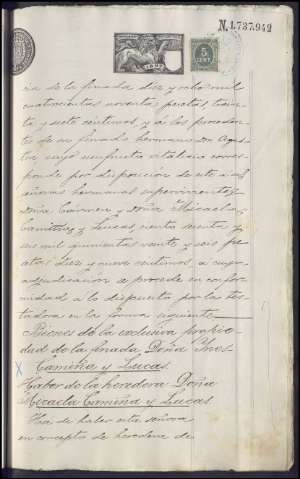 N. 1.737.942
5
CENT.
cia de la finada diez y ocho mil
cuatrocientas noventa pesetas trein-
ta y siete céntimos, y á los proceden-
tes de su finado hermano Don
cuyo usufructo vitalicio corres-
ponde por disposición de este á sus
señoras hermanas supervivientes
Doña Cármen y Doña Micaela
Camiña y Lucas, ciento sesenta y
seis mil quinientas veinte y seis pe-
setas diez y nueve céntimos, á cuya
adjudicación se procede en confor-
midad á lo dispuesto por las tes-
tadora en la forma siguiente
Bienes de la exclusiva propie-
dad de la finada, Doña Ines
Camiña y Lucas
Haber de la heredera Doña
Micaela Camiña y Lucas
Há de haber esta señora
en concepto de heredera de